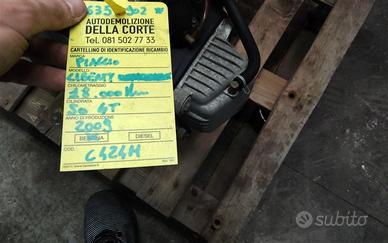 635 902
AUTODEMOLIZIONE
DELLA CORTE
Tel. 081 502 77 33
CARTELLINO DI IDENTIFICAZIONE RICAMBIO
MARCA
PIAGGIO
MODELLO
LIBERTY
CHILOMETRAGGIO
18.000 Km
CILINDRATA
50 4T
ANNO DI PRODUZIONE
2009
BENZINA DIESEL
COD.
C424M
subito